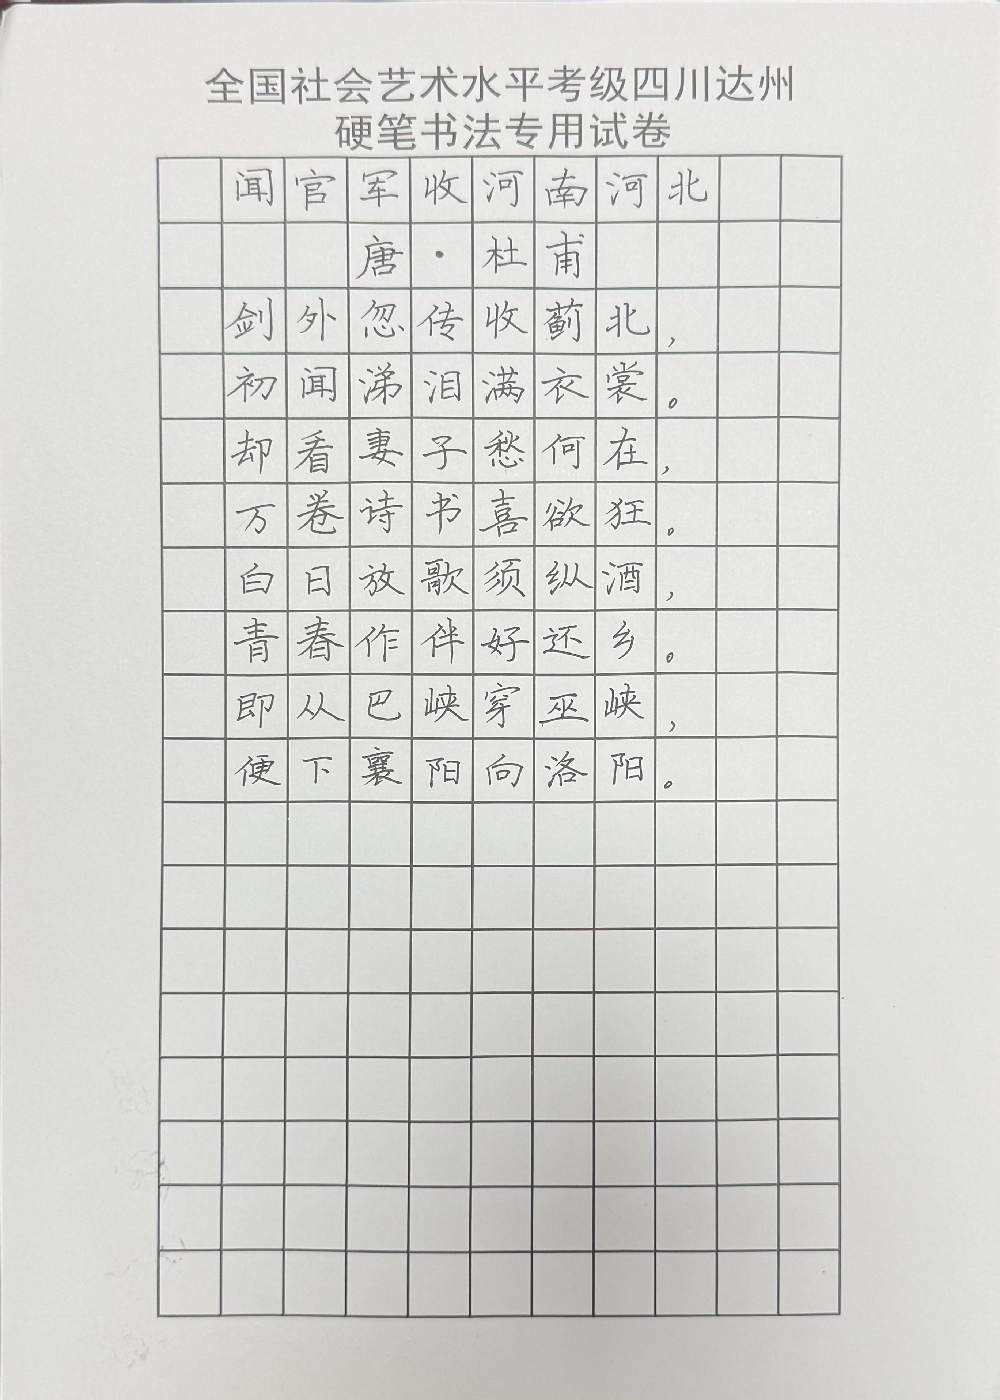 全国社会艺术水平考级四川达州
硬笔书法专用试卷
闻官军收河南河北
唐·杜甫
剑外忽传收蓟北，
初闻涕泪满衣裳。
却看妻子愁何在，
万卷诗书喜欲狂。
白日放歌须纵酒，
青春作伴好还乡。
即从巴峡穿巫峡，
便下襄阳向洛阳。